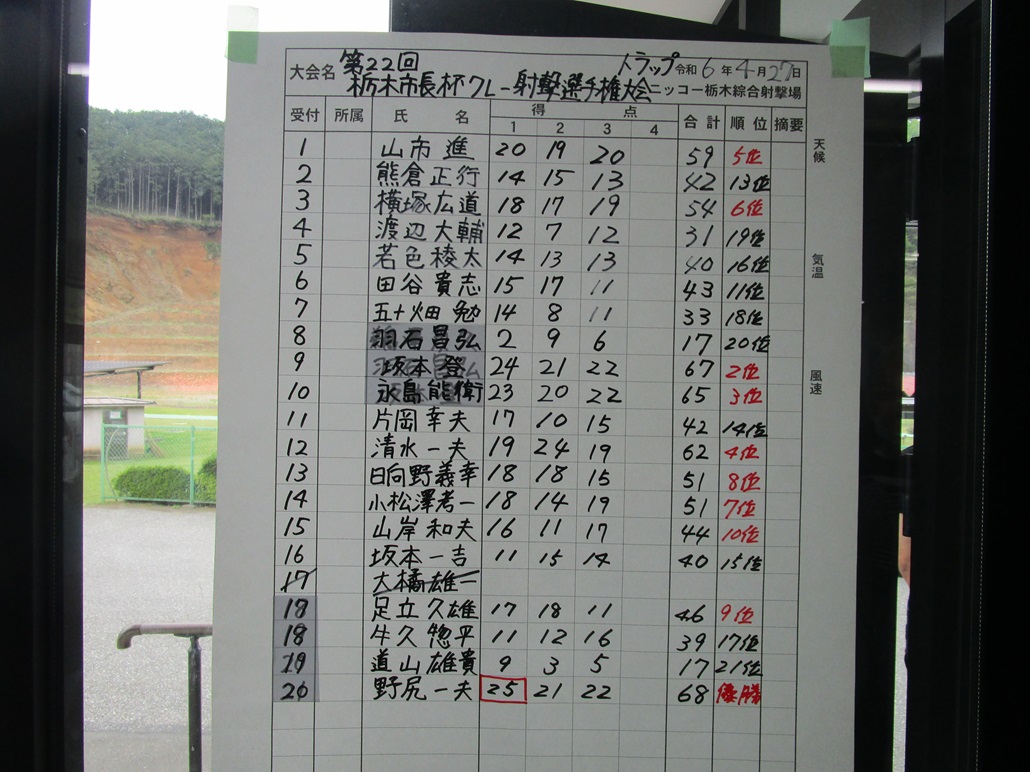 大会名 第22回 トラップ 令和6年4月27日
栃木市長杯クレー射撃選手権大会 ニッコー栃木綜合射撃場
受付 所属 氏名 得点 合計 順位 摘要
1 2 3 4
1 山市進 20 19 20 59 5位
2 熊倉正行 14 15 13 42 13位
3 横塚広道 18 17 19 54 6位
4 渡辺大輔 12 7 12 31 19位
5 若色稜太 14 13 13 40 16位
6 田谷貴志 15 17 11 43 11位
7 五十畑勉 14 8 11 33 18位
8 羽石昌弘 2 9 6 17 20位
9 坂本登 24 21 22 67 2位
10 永島能衛 23 20 22 65 3位
11 片岡幸夫 17 10 15 42 14位
12 清水一夫 19 24 19 62 4位
13 日向野義幸 18 18 15 51 8位
14 小松澤考一 18 14 19 51 7位
15 山岸和夫 16 11 17 44 10位
16 坂本一吉 11 15 14 40 15位
17 大橋雄一
17 足立久雄 17 18 11 46 9位
18 牛久惣平 11 12 16 39 17位
19 道山雄貴 9 3 5 17 21位
20 野尻一夫 25 21 22 68 優勝
天候
気温
風速